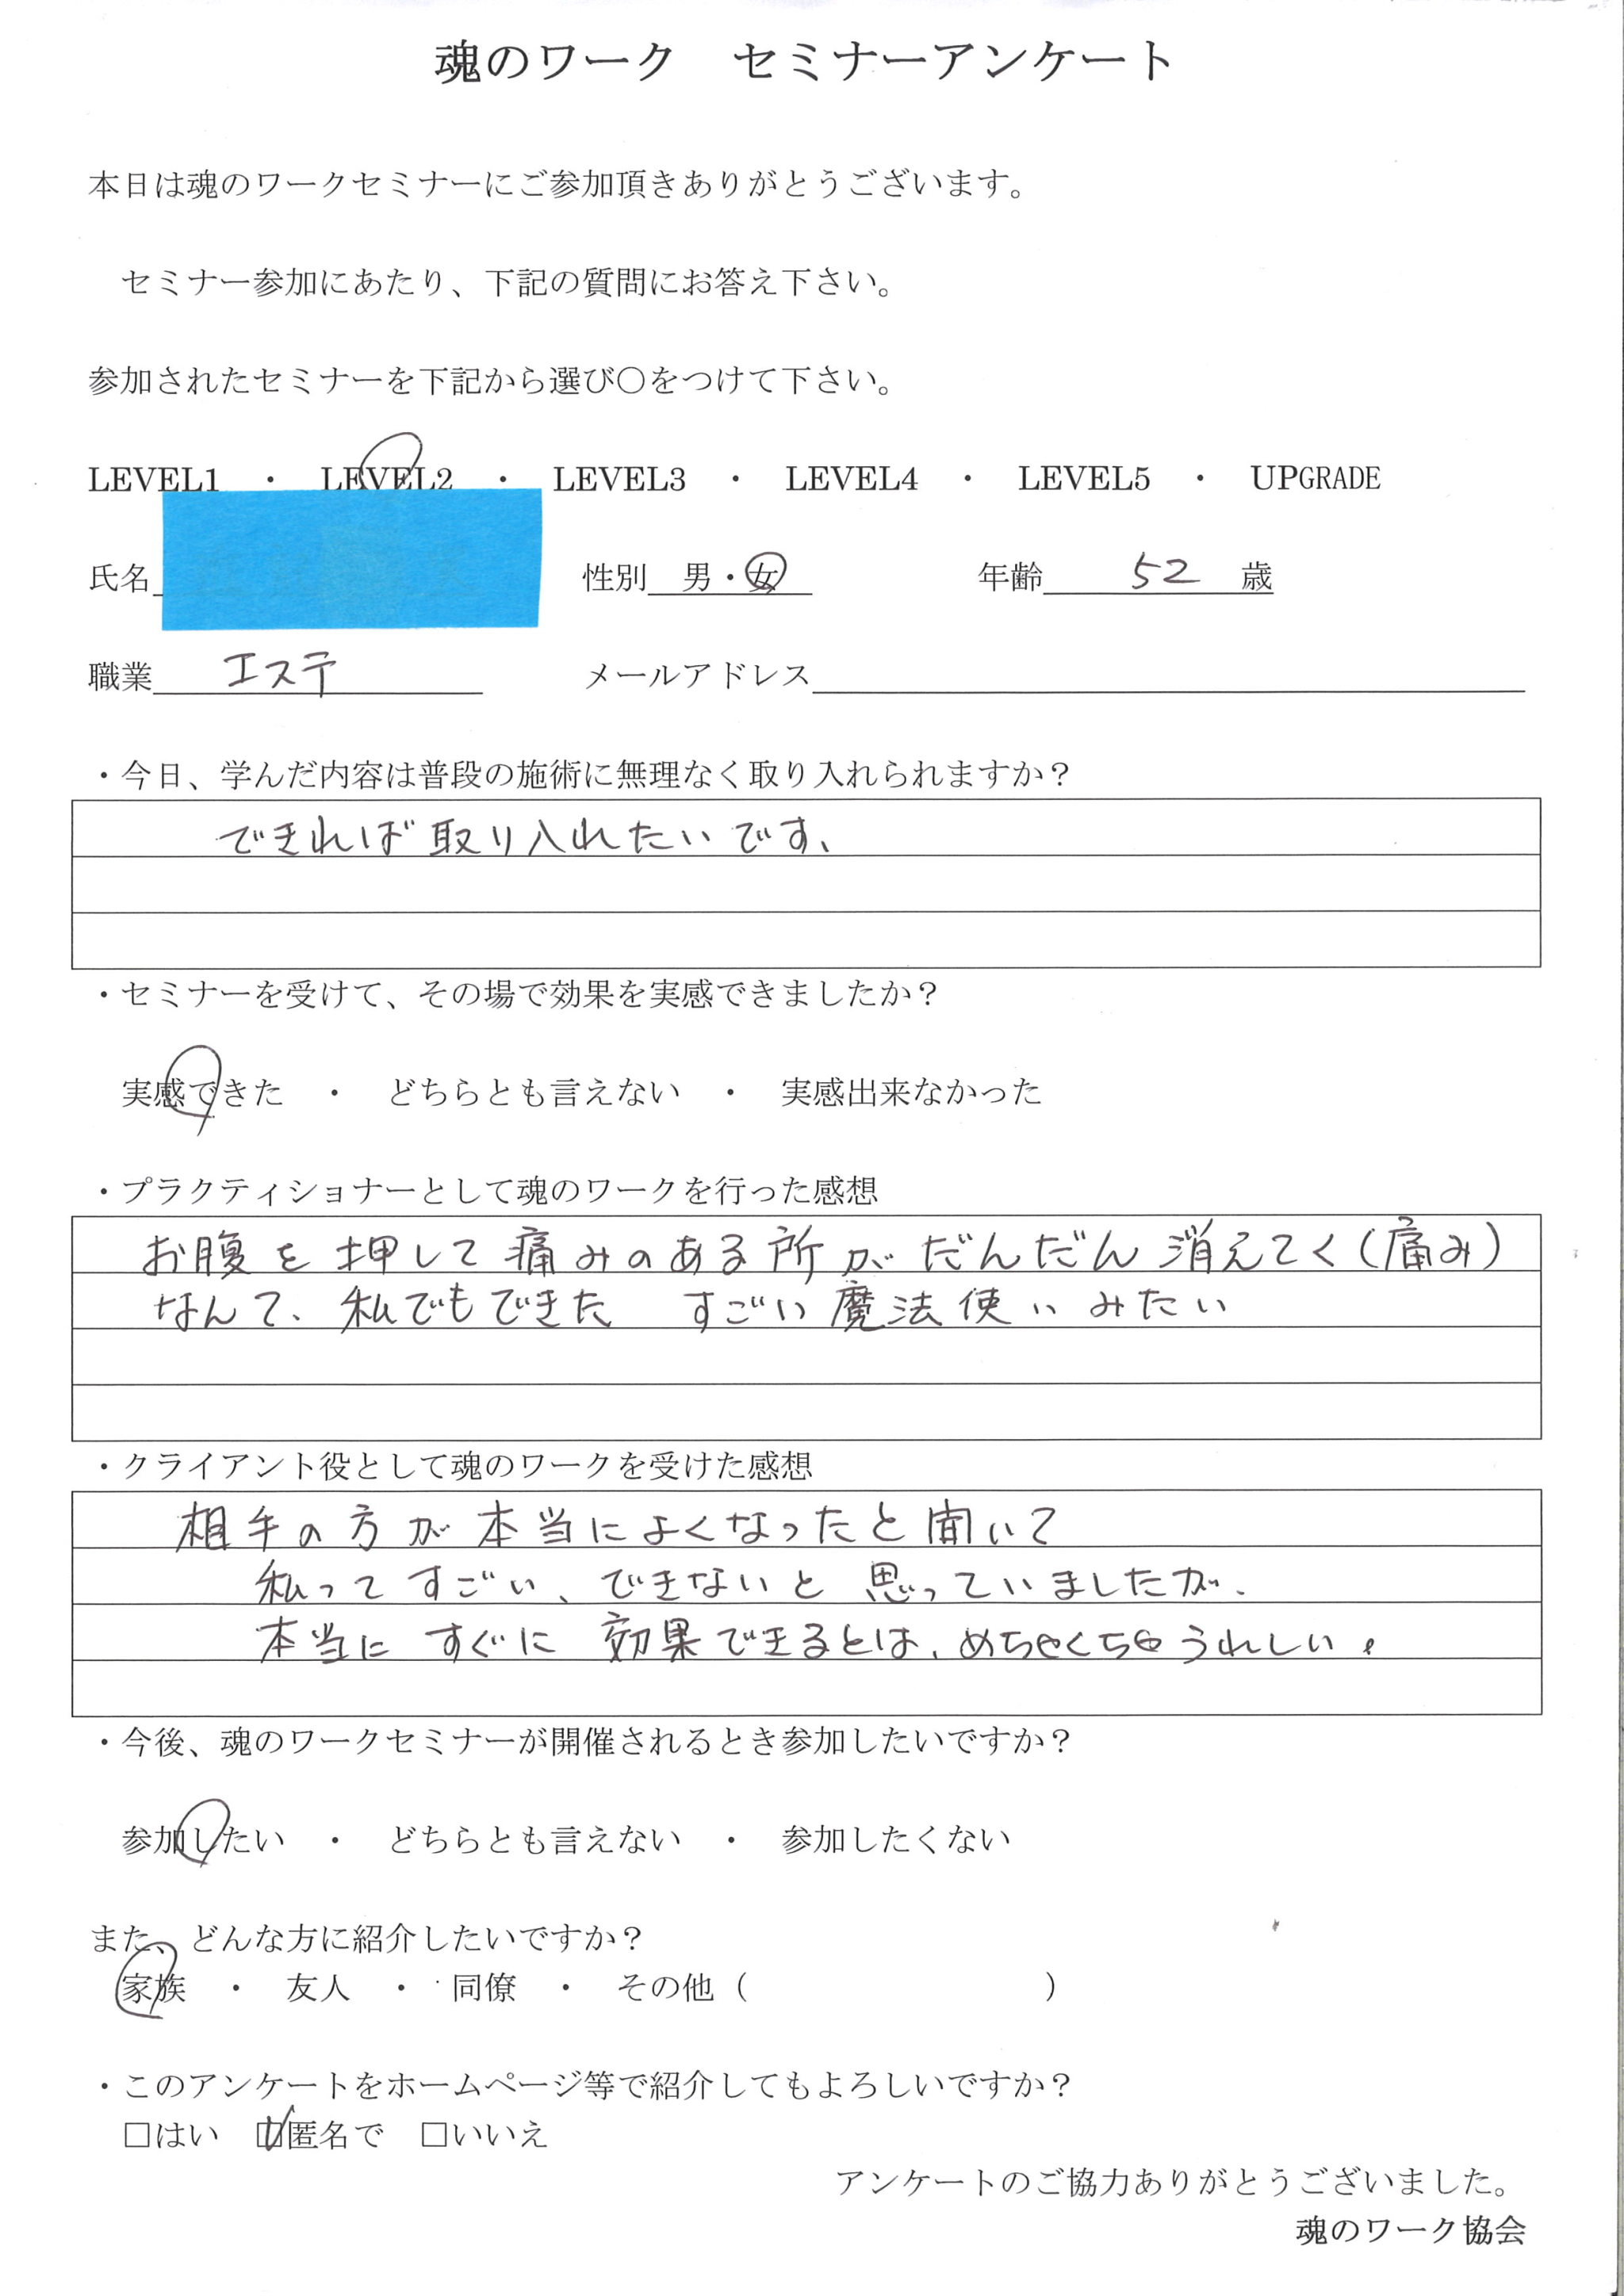 魂のワーク　セミナーアンケート
本日は魂のワークセミナーにご参加頂きありがとうございます。
セミナー参加にあたり、下記の質問にお答え下さい。
参加されたセミナーを下記から選び〇をつけて下さい。
LEVEL1　・　LEVEL2　・　LEVEL3　・　LEVEL4　・　LEVEL5　・　UPGRADE
氏名　性別　男・女　年齢　52　歳
職業　エステ　メールアドレス
・今日、学んだ内容は普段の施術に無理なく取り入れられますか？
できれば取り入れたいです、
・セミナーを受けて、その場で効果を実感できましたか？
実感できた　・　どちらとも言えない　・　実感出来なかった
・プラクティショナーとして魂のワークを行った感想
お腹を押して痛みのある所がだんだん消えてく（痛み）
なんて、私でもできた　すごい魔法使いみたい
・クライアント役として魂のワークを受けた感想
相手の方が本当によくなったと聞いて
私ってすごい、できないと思っていましたが、
本当にすぐに効果できるとは、めちゃくちゃうれしい。
・今後、魂のワークセミナーが開催されるとき参加したいですか？
参加したい　・　どちらとも言えない　・　参加したくない
また、どんな方に紹介したいですか？
家族　・　友人　・　同僚　・　その他（　　　　　　　　　）
・このアンケートをホームページ等で紹介してもよろしいですか？
□はい　☑匿名で　□いいえ
アンケートのご協力ありがとうございました。
魂のワーク協会